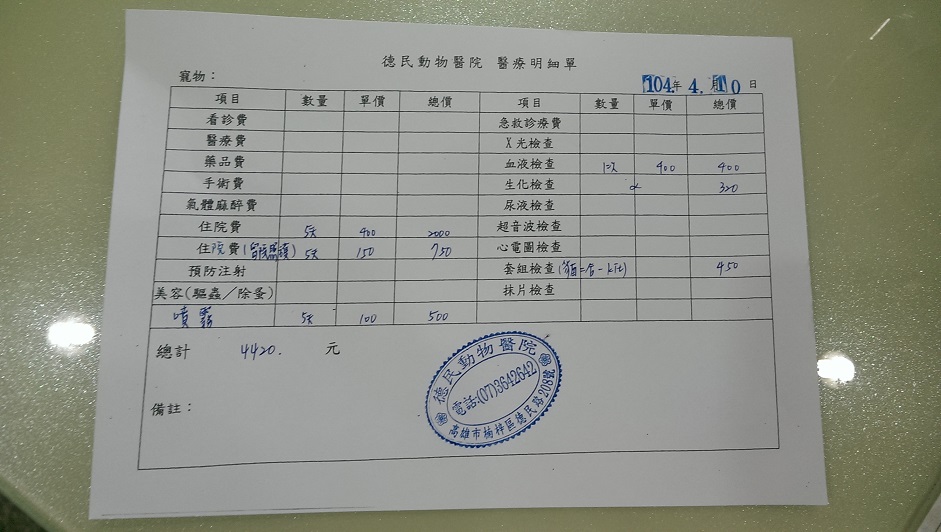 德民動物醫院 醫療明細單
寵物： 104年 4.月10日
項目 數量 單價 總價 項目 數量 單價 總價
看診費 急救診療費
醫療費 X光檢查
藥品費 血液檢查 1次 400 400
手術費 生化檢查 320
氣體麻醉費 尿液檢查
住院費 5天 400 2000 超音波檢查
住院費 5天 150 750 心電圖檢查
預防注射 套組檢查 450
美容(驅蟲／除蚤) 抹片檢查
噴霧 5天 100 500
總計 4420. 元
備註：
德民動物醫院
電話:(07)3642642
高雄市楠梓區德民路208號